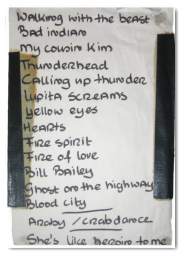 Walking with the beast
Bad indian
My cousin Kim
Thunderhead
Calling up thunder
Lupita screams
Yellow eyes
Hearts
Fire spirit
Fire of love
Bill Bailey
Ghost on the highway
Blood city
Araby / Crabdance
She's like heroin to me